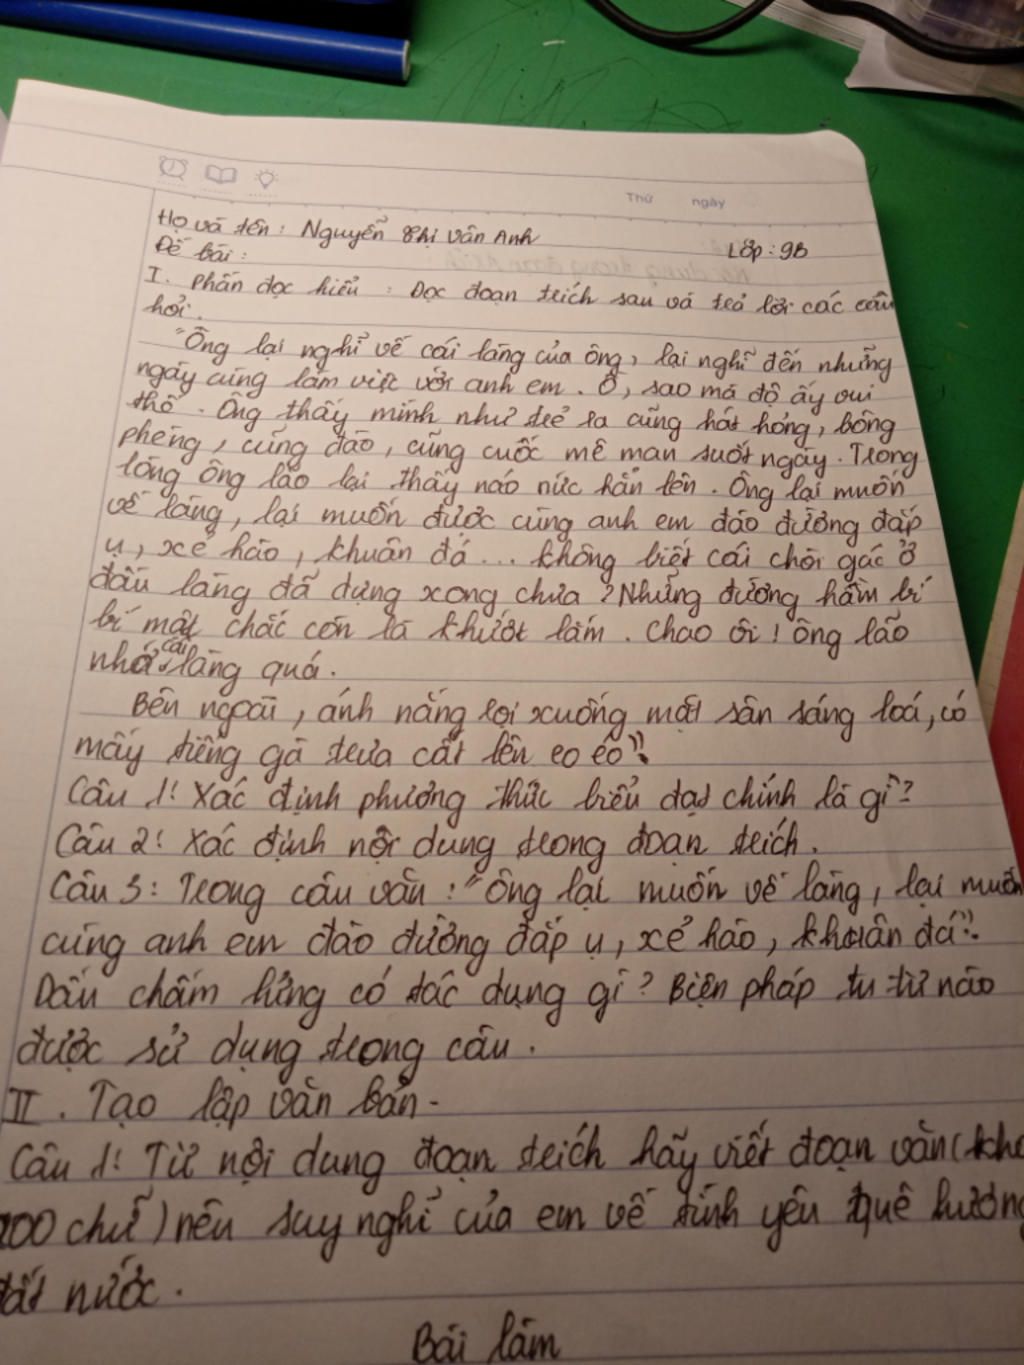 Thứ ngày
Họ và tên: Nguyễn Thị Vân Anh Lớp: 9B
Đề bài:
I. Phần đọc hiểu: Đọc đoạn trích sau và trả lời các câu
hỏi.
"Ông lại nghĩ về cái làng của ông, lại nghĩ đến những
ngày cùng làm việc với anh em. Ồ, sao mà độ ấy vui
thế. Ông thấy mình như trẻ ra cũng hát hỏng, bông
phèng, cũng đào, cũng cuốc mê man suốt ngày. Trong
lòng ông lão lại thấy náo nức hẳn lên. Ông lại muốn
về làng, lại muốn được cùng anh em đào đường đắp
ụ, xẻ hào, khuân đá... không biết cái chòi gác ở
đầu làng đã dựng xong chưa? Những đường hầm bí
bí mật chắc còn là khướt lắm. Chao ôi! ông lão
nhớ cái làng quá.
Bên ngoài, ánh nắng rọi xuống mặt sân sáng loá, có
mấy tiếng gà trưa cất lên eo éo".
Câu 1: Xác định phương thức biểu đạt chính là gì?
Câu 2: Xác định nội dung trong đoạn trích.
Câu 3: Trong câu văn: "Ông lại muốn về làng, lại muốn
cùng anh em đào đường đắp ụ, xẻ hào, khuân đá".
Dấu chấm lửng có tác dụng gì? Biện pháp tu từ nào
được sử dụng trong câu.
II. Tạo lập văn bản.
Câu 1: Từ nội dung đoạn trích hãy viết đoạn văn (
200 chữ) nêu suy nghĩ của em về tình yêu quê hương
đất nước.
Bài làm